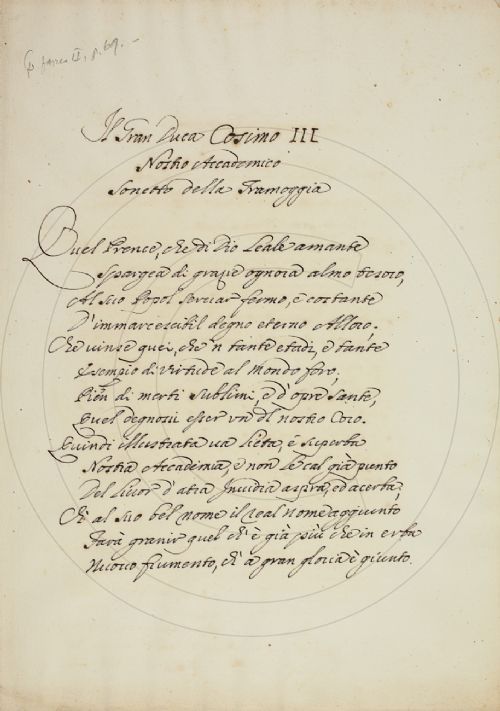 Il Gran Duca Cosimo III
Nostro Accademico
Sonetto della Tramoggia
Quel Prence, che di Dio Leale amante
Spargea di grazie ognora almo tesoro,
Al suo Popol serviar fermo, e costante
D'immarcescibil degno eterno Alloro,
Che vinse quei, che 'n tante etadi, e tante
Esempio di Virtude al Mondo foro,
Pien di merti sublimi, e d'opre sante,
Quel degnossi esser un dl nostro Coro.
Quindi illustrata va lieta, e superba
Nostra Accademia, e non le cal già punto
Del livor d'atra Invidia aspra, ed acerba,
Ch' al suo bel nome il real nome aggiunto
Farà granir quel ch' è già più che in erba
Nuovo frumento, ch' a gran gloria è giunto.